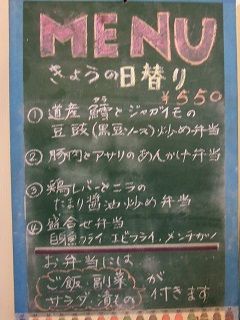 MENU
きょうの日替り
¥550
① 道産 鱈とジャガイモの
たら
豆豉(黒豆ソース)炒め弁当
② 豚肉とアサリのあんかけ弁当
③ 鶏レバーとニラの
たまり醤油炒め弁当
④ 盛合せ弁当
白身フライ エビフライ、メンチカツ
お弁当には
ご飯、副菜
サラダ、漬もの
が
付きます